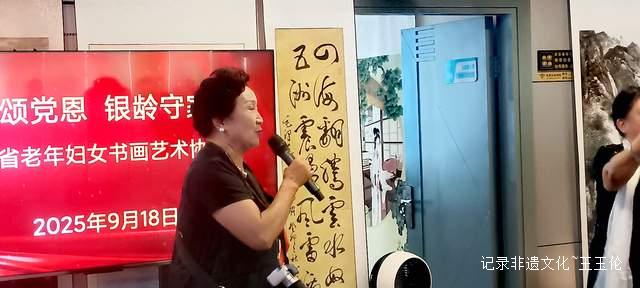 颂党恩 银龄守
省老年妇女书画艺术协
2025年9月18日
四海翻腾云水怒
五洲震荡风雷
记录非遗文化~王玉伦